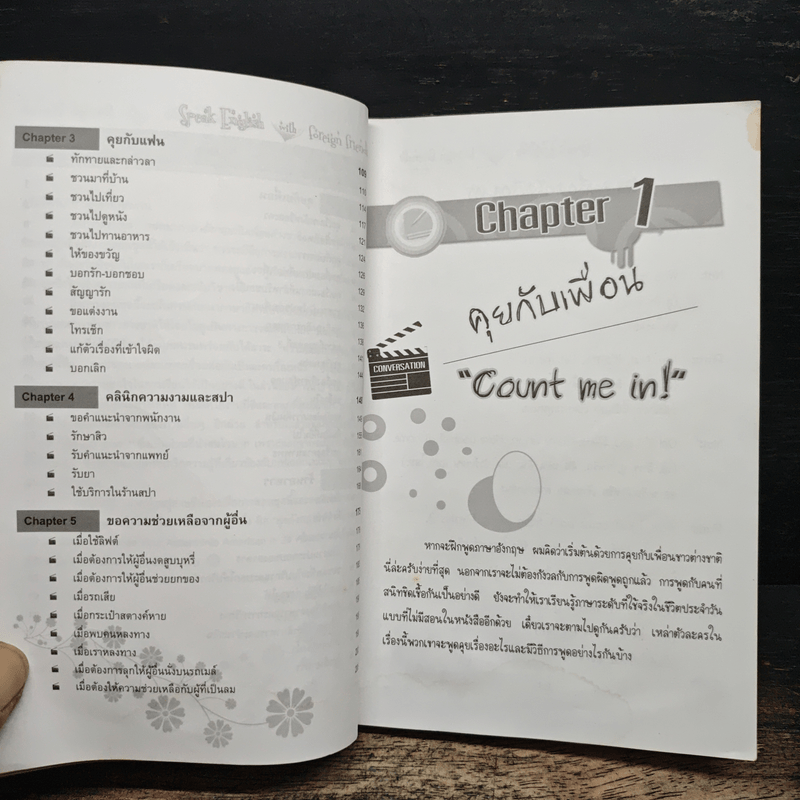 Speak English with foreign friends
Chapter 3 คุยกับแฟน
ทักทายและกล่าวลา 109
ชวนมาที่บ้าน
ชวนไปเที่ยว
ชวนไปดูหนัง
ชวนไปทานอาหาร
ให้ของขวัญ
บอกรัก-บอกชอบ
สัญญารัก
ขอแต่งงาน
โทรเช็ก
แก้ตัวเรื่องที่เข้าใจผิด
บอกเลิก
Chapter 4 คลินิกความงามและสปา
ขอคำแนะนำจากพนักงาน
รักษาสิว
รับคำแนะนำจากแพทย์
รับยา
ใช้บริการในร้านสปา
Chapter 5 ขอความช่วยเหลือจากผู้อื่น
เมื่อใช้ลิฟต์
เมื่อต้องการให้ผู้อื่นงดสูบบุหรี่
เมื่อต้องการให้ผู้อื่นช่วยยกของ
เมื่อรถเสีย
เมื่อกระเป๋าสตางค์หาย
เมื่อพบคนหลงทาง
เมื่อเราหลงทาง
เมื่อต้องการลุกให้ผู้อื่นนั่งบนรถเมล์
เมื่อต้องให้ความช่วยเหลือกับผู้ที่เป็นลม
Chapter 1
คุยกับเพื่อน
CONVERSATION
"Count me in!"
หากจะฝึกพูดภาษาอังกฤษ ผมคิดว่าเริ่มต้นด้วยการคุยกับเพื่อนชาวต่างชาติ
นี่ล่ะครับง่ายที่สุด นอกจากเราจะไม่ต้องกังวลกับการพูดผิดพูดถูกแล้ว การพูดกับคนที่
สนิทชิดเชื้อกันเป็นอย่างดี ยังจะทำให้เราเรียนรู้ภาษาระดับที่ใช้จริงในชีวิตประจำวัน
แบบที่ไม่มีสอนในหนังสืออีกด้วย เดี๋ยวเราจะตามไปดูกันครับว่า เหล่าตัวละครใน
เรื่องนี้พวกเขาจะพูดคุยเรื่องอะไรและมีวิธีการพูดอย่างไรกันบ้าง